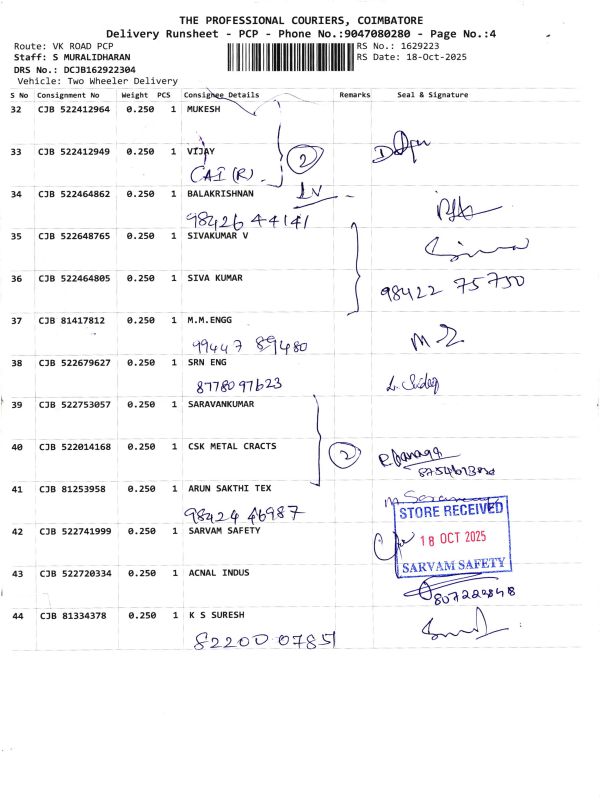 THE PROFESSIONAL COURIERS, COIMBATORE
Delivery Runsheet - PCP - Phone No.:9047080280 - Page No.:4
Route: VK ROAD PCP RS No.: 1629223
Staff: S MURALIDHARAN RS Date: 18-Oct-2025
DRS No.: DCJB162922304
Vehicle: Two Wheeler Delivery
S No Consignment No Weight PCS Consignee Details Remarks Seal & Signature
32 CJB 522412964 0.250 1 MUKESH
33 CJB 522412949 0.250 1 VIJAY
2
CAI (R)
34 CJB 522464862 0.250 1 BALAKRISHNAN
98426 44141
35 CJB 522648765 0.250 1 SIVAKUMAR V
36 CJB 522464805 0.250 1 SIVA KUMAR
98422 75750
37 CJB 81417812 0.250 1 M.M.ENGG
99447 89480
38 CJB 522679627 0.250 1 SRN ENG
8778097623
39 CJB 522753057 0.250 1 SARAVANKUMAR
40 CJB 522014168 0.250 1 CSK METAL CRACTS
2
41 CJB 81253958 0.250 1 ARUN SAKTHI TEX
98424 46987
STORE RECEIVED
42 CJB 522741999 0.250 1 SARVAM SAFETY
18 OCT 2025
SARVAM SAFETY
43 CJB 522720334 0.250 1 ACNAL INDUS
44 CJB 81334378 0.250 1 K S SURESH
82200 07851